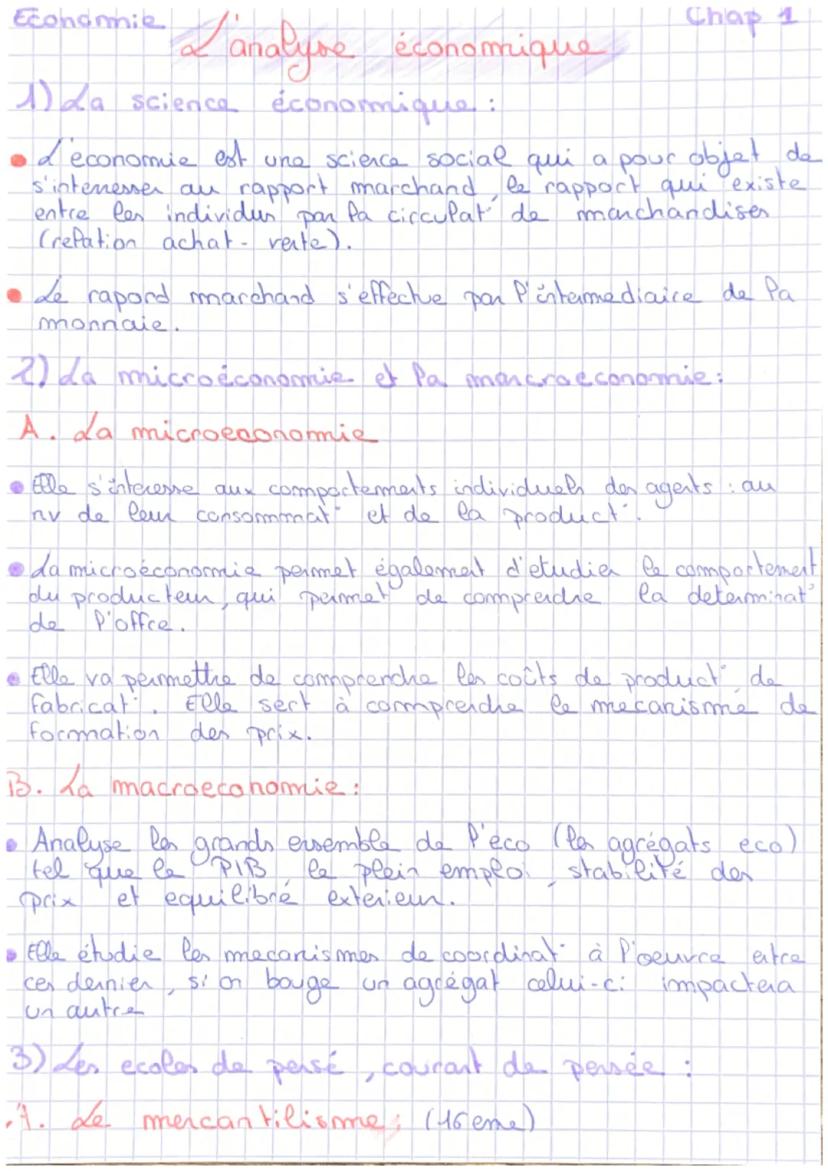 Economie
Chap 1
L'analyse économique
1) La science économique :
L'economie est une science social qui a pour objet de
s'interresser au rapport marchand, le rapport qui existe
entre les individus par la circulat° de marchandises
(relation achat - vente).
Le rapord marchand s'effectue par l'intermediaire de la
monnaie.
2) La microéconomie et la marcraeconomie :
A. La microeconomie
Elle s'interesse aux comportements individuels des agents : au
nv de leur consommmat° et de la product°.
La microéconomie permet également d'etudier le comportement
du producteur, qui permet de comprendre la determinat°
de l'offre.
Elle va permettre de comprendre les coûts de product°, de
fabricat°. Elle sert à commprendre le mecanisme de
formation des prix.
B. La macroeconomie :
Analyse les grands ensemble de l'éco (les agrégats eco)
tel que le PIB, le plein emploi, stabilité des
prix et equilibré exterieur.
Elle étudie les mecanismes de coordinat° à l'oeuvre entre
ces dernier, si on bouge un agrégat celui-ci impactera
un autre
3) Les ecoles de pensé, courant de pensée :
A. Le mercantilisme : (16 eme)